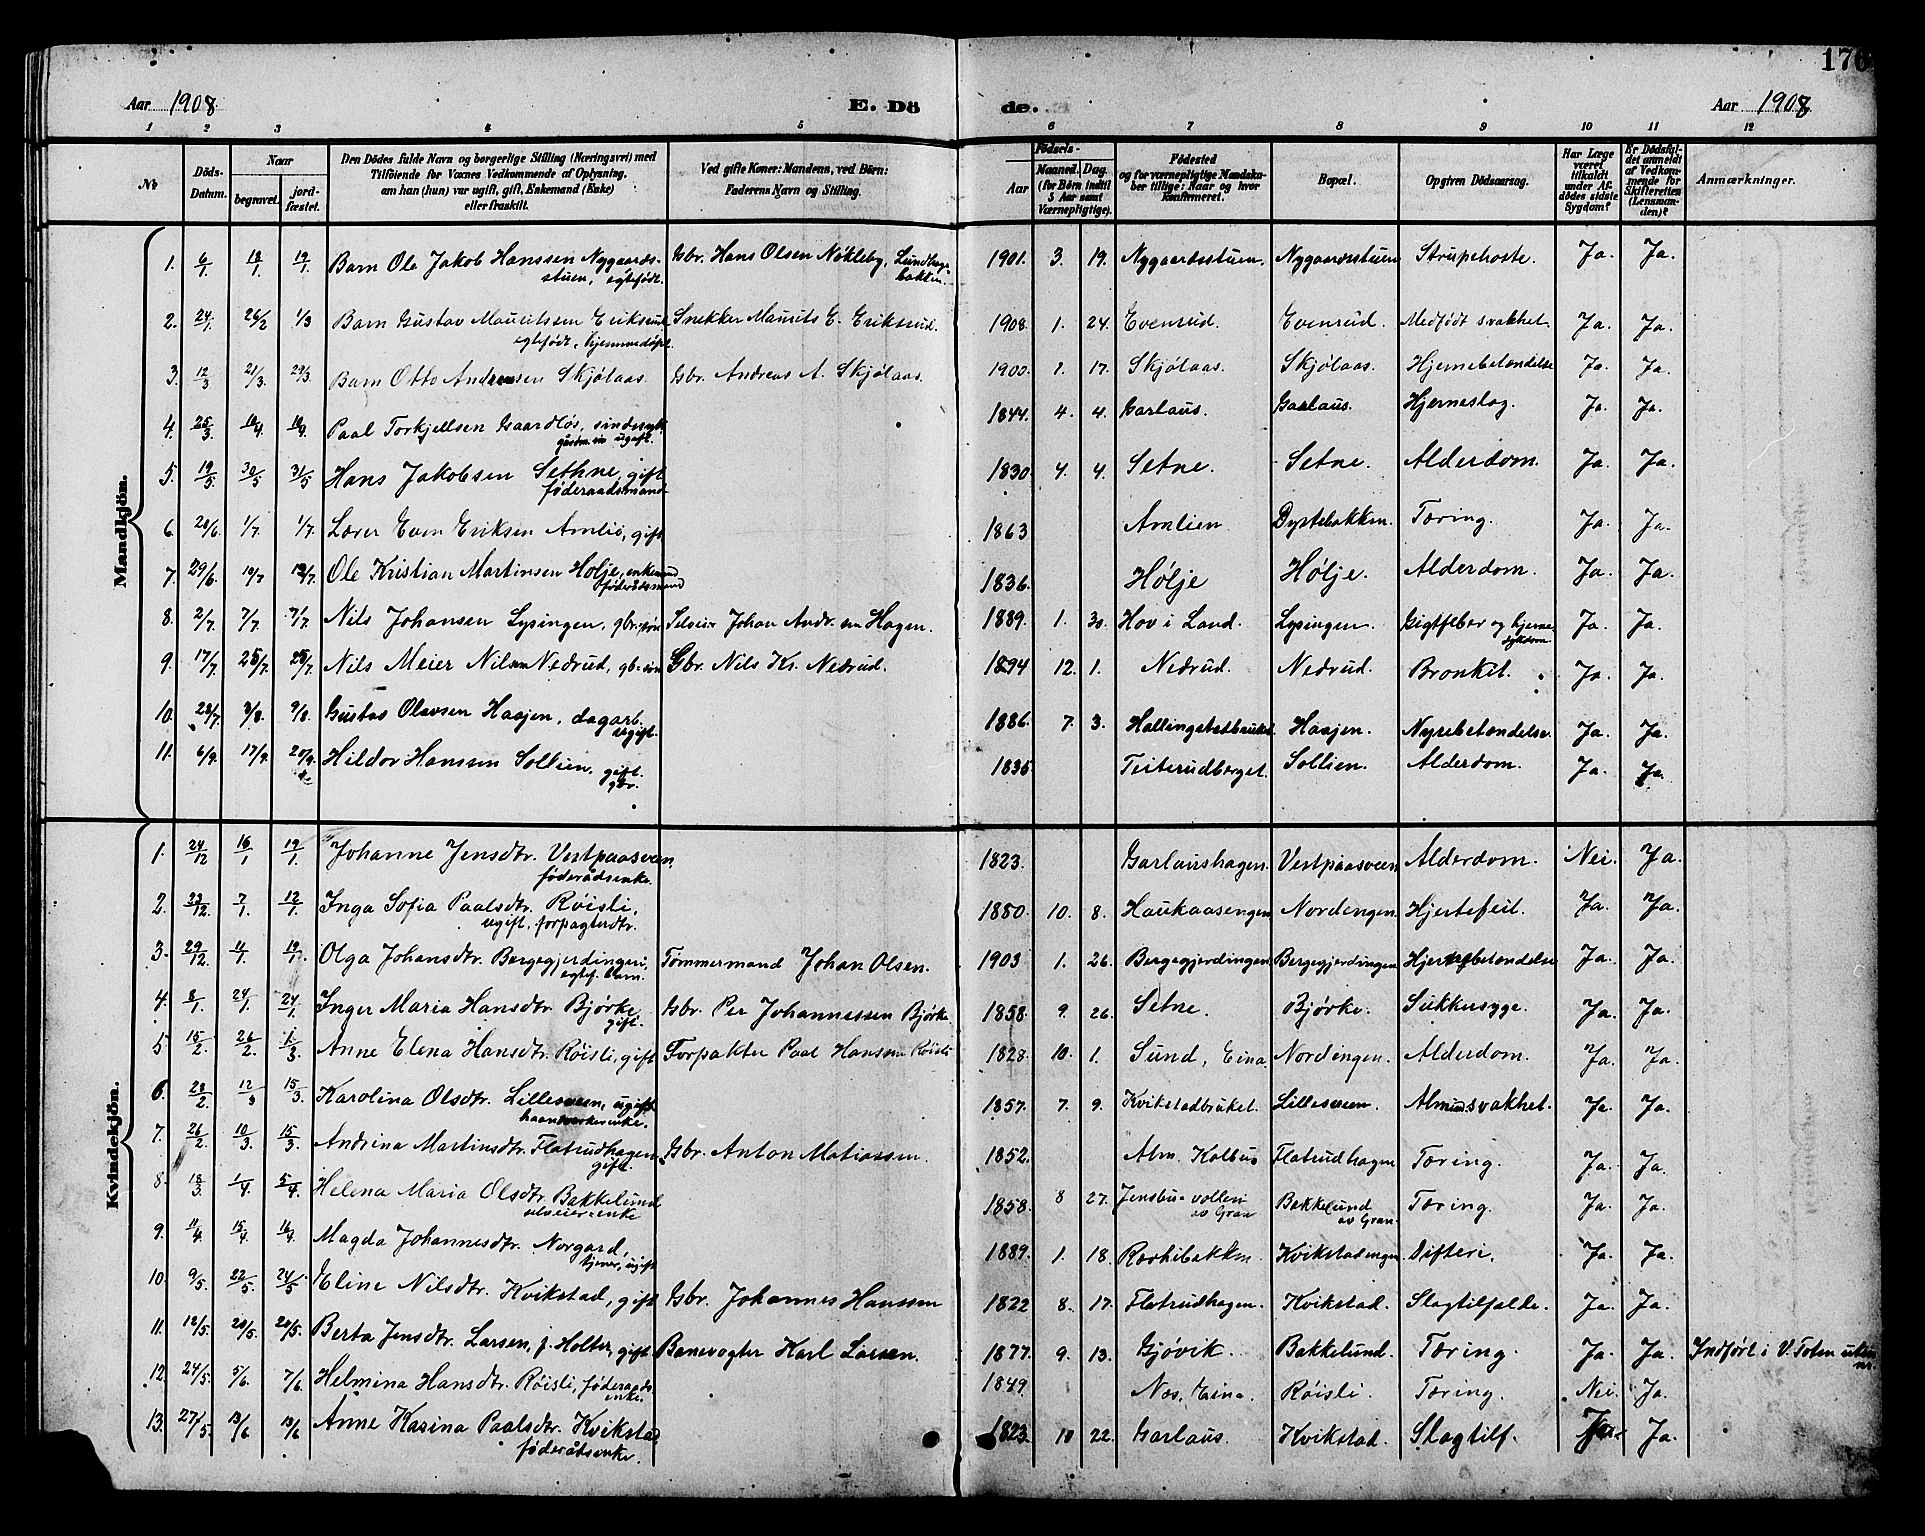 170
Aar 1908.
E. Dö
de.
Aar 1908.
1 2 3 4 5 6 7 8 9 10 11 12
№
Döds-Datum.
Naar
begravet.
jord-fæstet.
Den Dödes fulde Navn og borgerlige Stilling (Næringsvei) med
Tilföiende for Voxnes Vedkommende af Oplysning.
om han (hun) var ugift, gift, Enkemand (Enke)
eller fraskilt.
Ved gifte Koner: Mandens, ved Börn:
Faderens Navn og Stilling.
Födsels-
Aar
Maaned. Dag.
(for Börn indtil
5 Aar samt
Værnepligtige).
Födested
og for værnepligtige Mandska-
ber tillige: Naar og hvor
konfirmeret.
Bopæl.
Opgiven Dödsaarsag.
Har Læge
været
tilkaldt
under Af-
dödes sidste
Sygdom?
Er Dödsfal-
det anmeldt
af Vedkom-
mende for
Skifteretten
(Lensman-
den)?
Anmærkninger.
Mandkjön.
1. 6/1 18/1 19/1 Barn Ole Jakob Hanssen Nygaards- Gbr. Hans Olsen Nökleby, Lundhag- 1901. 3. 19. Nygaardsstuen. Nygaardsstuen Strupehoste. Ja. Ja.
stuen, egtefödt. bakken.
2. 24/1 26/2 1/3 Barn Gustav Mauritssen Eriksrud Snekker Maurits E. Eriksrud. 1908. 1. 24. Evenrud. Evenrud. Medfödt svakhet. Ja. Ja.
egtefödt, hjemmedöpt.
3. 12/3 21/3. 29/3. Barn Otto Andreassen Skjölaas. Gbr. Andreas A. Skjölaas. 1900. 1. 17. Skjölaas. Skjölaas. Hjernebetændelse Ja. Ja.
4. 25/3 18/4. 18/4. Paal Torkjellsen Gaardlös, sindssyk 1844. 4. 4. Garlaus. Garlaus. Hjerneslag. Ja. Ja.
ugift.
5. 19/5 30/5 31/5 Hans Jakobsen Sethne, gift 1830 4. 4. Setne. Setne. Alderdom. Ja. Ja.
föderaadsmand
6. 20/6. 1/7. 1/7. Lærer Even Eriksen Amlið, gift 1863 Amlien Dystebakken. Tæring. Ja. Ja.
7. 29/6. 10/7 12/7. Ole Kristian Martinsen Hölje, enkemand 1836. Hölje Hölje. Alderdom. Ja. Ja.
föderådsmand
8. 2/7. 7/7. 7/7. Nils Johansen Lysingen, gbr.sön Selveier Johan Andr.sen Hagen. 1889. 1. 30. Hov i Land. Lysingen. Gigtfeber og hjerne Ja. Ja.
sykdom
9. 17/7. 25/7. 25/7. Nils Meier Nilsen Nedrud, gb.sön Gbr. Nils Kr. Nedrud. 1894 12. 1. Nedrud. Nedrud. Bronkit. Ja. Ja.
10. 28/7. 8/8. 9/8. Gustav Olavsen Haajen, dagarb. 1886. 7. 3. Hallingstadbruket Haajen. Nyrebetændelse. Ja. Ja.
ugift.
11. 6/9. 17/9. 20/9. Hildor Hanssen Sollien, gift. 1835 Teiterudberget. Sollien. Alderdom. Ja. Ja.
gbr.
Kvindekjön.
1. 24/12 16/1 19/1. Johanne Jensdtr. Vestpaasveen 1823. Garlaushagen. Vestpaasveen Alderdom. Nei. Ja.
föderådsenke.
2. 23/12. 7/1. 12/1 Inga Sofia Paalsdtr. Röisli, 1880. 10. 8. Haukaasengen Nordengen. Hjertefeil. Ja. Ja.
ugift, forpagterdtr.
3. 29/12. 11/1. 19/1. Olga Johansdtr. Bergegjerdingen, Tömmermand Johan Olsen. 1903 1. 26. Bergegjerdingen Bergegjerdingen Hjernebetændelse Ja. Ja.
egtef. barn.
4. 8/1. 24/1. 24/1. Inger Maria Hansdtr. Bjørke Gbr. Per Johannessen Bjørke 1858. 9. 26. Setne. Bjørke. Sukkersyge. Ja. Ja.
gift.
5 15/2. 26/2. 1/3. Anne Elena Hansdtr. Röisli, gift Forpakter Paal Hanssen Röisli 1828. 10. 1. Sund, Eina Nordengen. Alderdom. Ja. Ja.
6. 28/2. 12/3 15/3 Karolina Olsdtr. Lillesveen, ugift 1857. 7. 9. Kvikstadbruket. Lillesveen. Almen svakhet. Ja. Ja.
haandverkerenke.
7. 26/2. 10/3. 15/3. Andrina Martinsdtr. Flatrudhagen Gbr. Anton Matiassen. 1852. Alm. Kolbu Flatrudhagen Tæring. Ja. Ja.
gift.
8. 18/3. 1/4. 5/4. Helena Maria Olsdtr. Bakkelund 1858. 8 27. Jensbu-vollen Bakkelund Tæring. Ja. Ja.
selveierenke av Gran av Gran.
9. 11/4 15/4. 16/4. Magda Johannesdtr. Norgard, 1889. 1. 18. Kvikstadengen Difteri. Ja. Ja.
tjener, ugift
10. 9/5. 22/5. 24/5. Eline Nilsdtr. Kvikstad, gift Gbr. Johannes Hanssen 1822 8. 17. Flatrudhagen. Kvikstad. Slagtilfælde. Ja. Ja.
11. 12/5. 20/5. 20/5. Berta Jensdtr. Larsen, f. Holter, gift Banevogter Karl Larsen. 1877. 9. 13. Gjøvik. Bakkelund. Tæring. Ja. Ja. Indført i V. Toten uten
nr.
12. 24/5. 5/6. 7/6. Helmina Hansdtr. Röisli, föderaads- 1849. Næs, Eina. Röisli. Tæring. Nei. Ja.
enke.
13. 27/5. 13/6 13/6 Anne Karina Paalsdtr. Kvikstad 1823. 10 22. Garlaus. Kvikstad. Slagtilf. Ja. Ja.
föderådsenke.